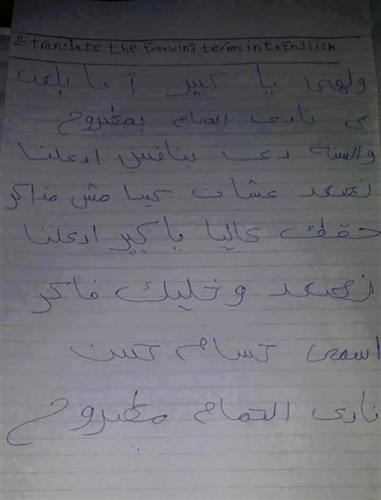 2-translate the following terms into English
ولهى يا كبير أما بلعب
فى نادى الحمام بمطروح
والسنه دى بنافس ادعلنا
نصعد عشان كيميا مش مذاكر
حقك عاليا يا كبير ادعلنا
نصعد وخليك فاكر
اسمى حسام حسن
نادى الحمام مطروح